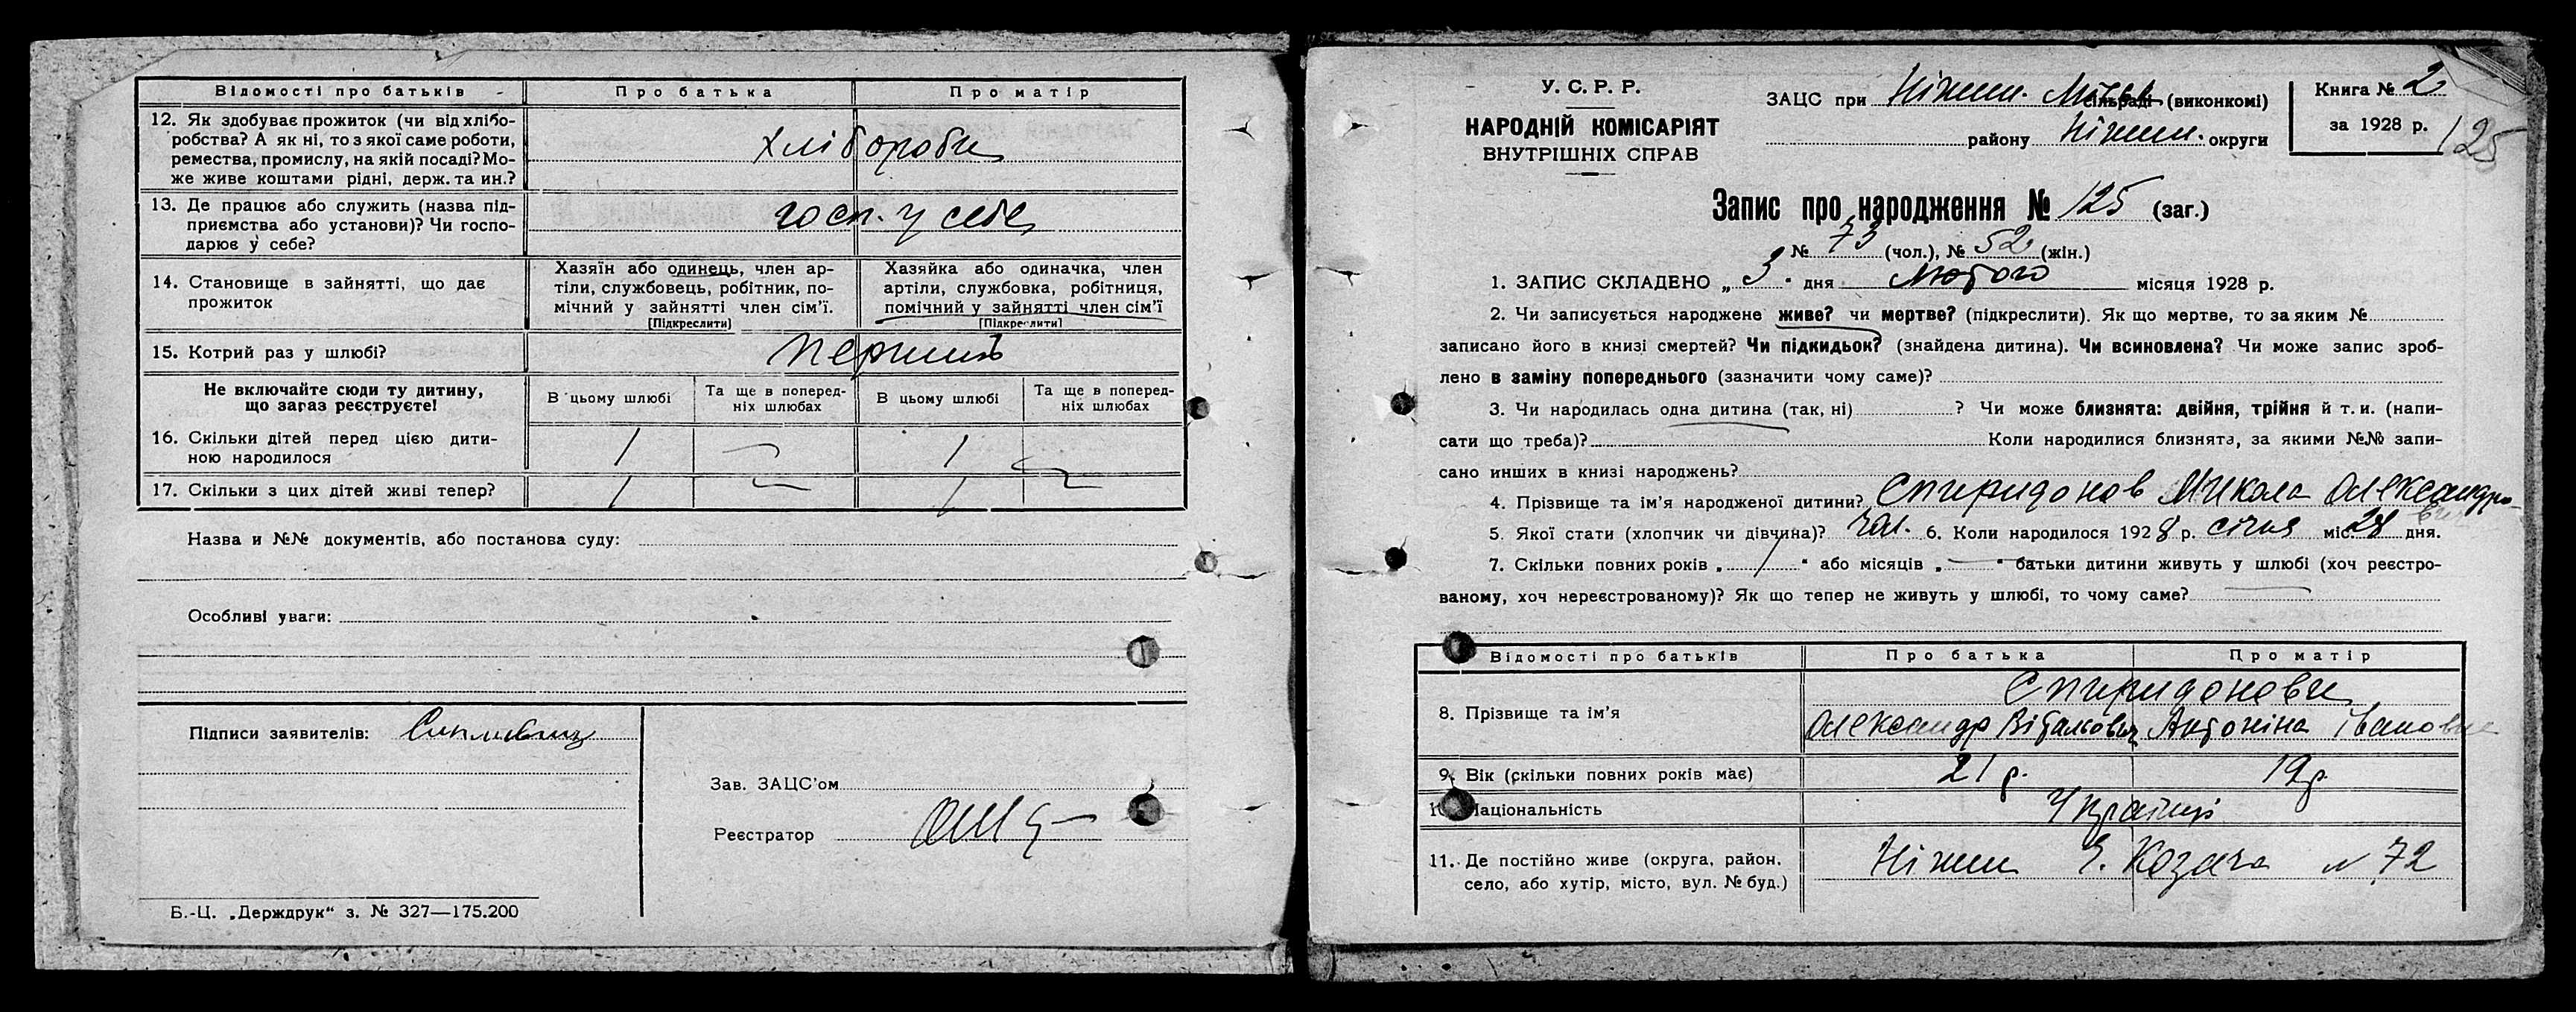 Відомості про батьків
Про батька
Про матір
12. Як здобуває прожиток (чи від хлібо-
робства? А як ні, то з якої саме роботи,
ремества, промислу, на якій посаді? Мо-
же живе коштами рідні, держ. та ин.?
хлібороби
13. Де працює або служить (назва під-
приємства або установи)? Чи госпо-
дарює у себе?
госп. у себе
14. Становище в зайнятті, що дає
прожиток
Хазяїн або одинець, член ар-
тіли, службовець, робітник, по-
мічний у зайнятті член сім'ї.
(Підкреслити)
Хазяйка або одиначка, член
артіли, службовка, робітниця,
помічний у зайнятті член сім'ї
(Підкреслити)
15. Котрий раз у шлюбі?
Не включайте сюди ту дитину,
що зараз реєструєте!
В цьому шлюбі
Та ще в поперед-
ніх шлюбах
В цьому шлюбі
Та ще в поперед-
ніх шлюбах
16. Скільки дітей перед цією дити-
ною народилося
1 — 1 —
17. Скільки з цих дітей живі тепер?
1 — 1 —
Назва и №№ документів, або постанова суду:
Особливі уваги:
Підписи заявителів:
Зав. ЗАЦС'ом
Реєстратор
Б.-Ц. „Держдрук“ з. № 327—175.200
У. С. Р. Р.
НАРОДНІЙ КОМІСАРІЯТ
ВНУТРІШНІХ СПРАВ
ЗАЦС при Ніжин. сільраді (виконкомі)
району Ніжин. округи
Книга № 2
за 1928 р.
125
Запис про народження № 125 (заг.)
№ 73 (чол.), № 52 (жін.)
1. ЗАПИС СКЛАДЕНО „ 3 “ дня Лютого місяця 1928 р.
2. Чи записується народжене живе? чи мертве? (підкреслити). Як що мертве, то за яким №
записано його в книзі смертей? Чи підкидьок? (знайдена дитина). Чи всиновлена? Чи може запис зроб-
лено в заміну попереднього (зазначити чому саме)?
3. Чи народилась одна дитина (так, ні) ? Чи може близнята: двійня, трійня й т. и. (напи-
сати що треба)? Коли народилися близнята, за якими №№ запи-
сано инших в книзі народжень?
4. Прізвище та ім'я народженої дитини? Спиридонов Микола Олександро-
вич
5. Якої стати (хлопчик чи дівчина)? чол. 6. Коли народилося 1928 р. січня міс. 28 дня.
7. Скільки повних років „ 1 “ або місяців „ — “ батьки дитини живуть у шлюбі (хоч реєстро-
ваному, хоч нереєстрованому)? Як що тепер не живуть у шлюбі, то чому саме? —
Відомості про батьків
Про батька
Про матір
8. Прізвище та ім'я
Спиридонови
Олександр Вітальович Антоніна Івановна
9. Вік (скільки повних років має)
21 р. 19 р.
10. Національність
Українці
11. Де постійно живе (округа, район,
село, або хутір, місто, вул. № буд.)
Ніжин Козача № 72